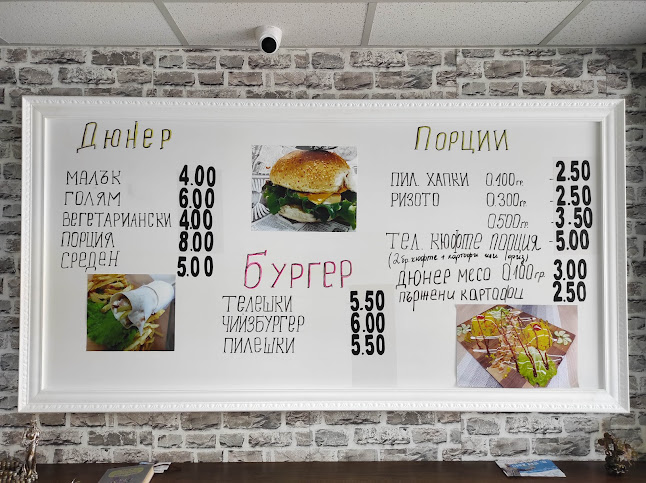 Дюнер
МАЛЪК 4.00
ГОЛЯМ 6.00
ВЕГЕТАРИАНСКИ 4.00
ПОРЦИЯ 8.00
СРЕДЕН 5.00
БУРГЕР
ТЕЛЕШКИ 5.50
ЧИИЗБУРГЕР 6.00
ПИЛЕШКИ 5.50
ПОРЦИИ
ПИЛ. ХАПКИ 0.100гр. -2.50
РИЗОТО 0.300гр. -2.50
0.500гр. -3.50
ТЕЛ. КЮФТЕ ПОРЦИЯ -5.00
(2бр. кюфте + картофи или ориз)
ДЮНЕР МЕСО 0.100гр. 3.00
ПЪРЖЕНИ КАРТОФИ 2.50